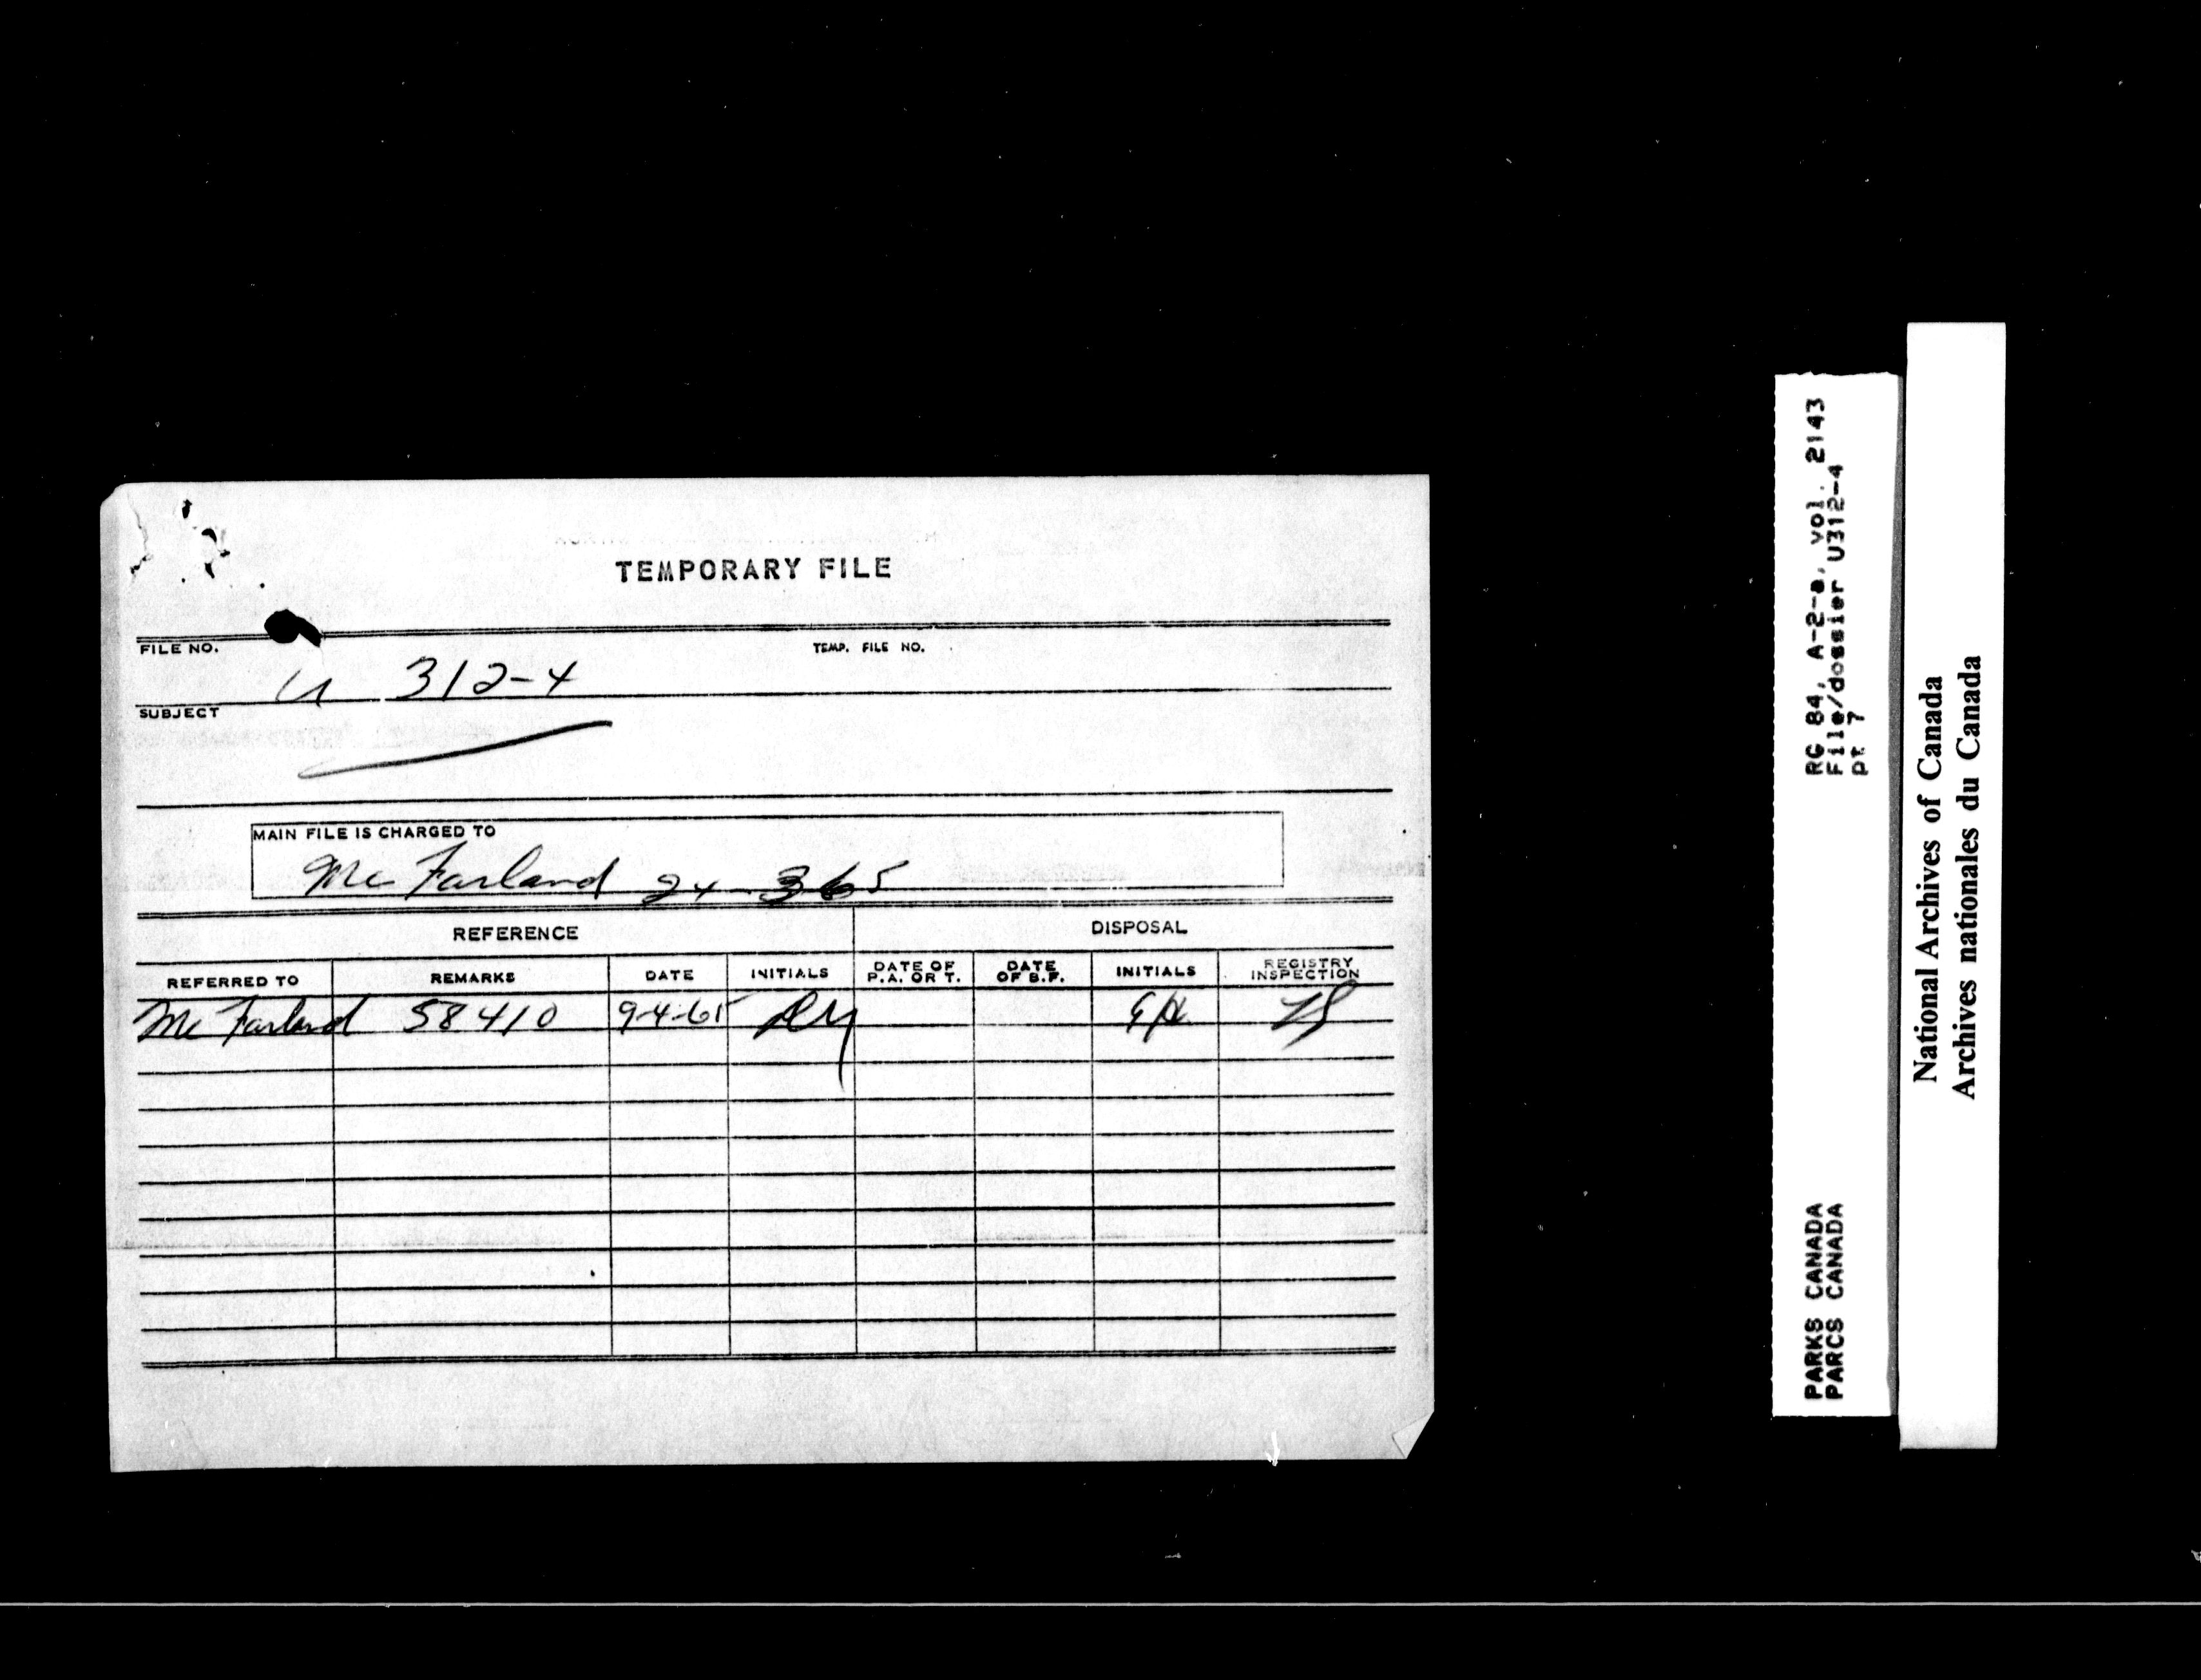 TEMPORARY FILE
FILE NO.
TEMP. FILE NO.
U 312-4
SUBJECT
MAIN FILE IS CHARGED TO
McFarland 24-3-65
REFERENCE
DISPOSAL
REFERRED TO REMARKS DATE INITIALS DATE OF P.A. OR T. DATE OF B.F. INITIALS REGISTRY INSPECTION
McFarland 58410 9-4-65
RG 84, A-2-a, vol. 2143
File/dossier U312-4
pt 7
PARKS CANADA
PARCS CANADA
National Archives of Canada
Archives nationales du Canada